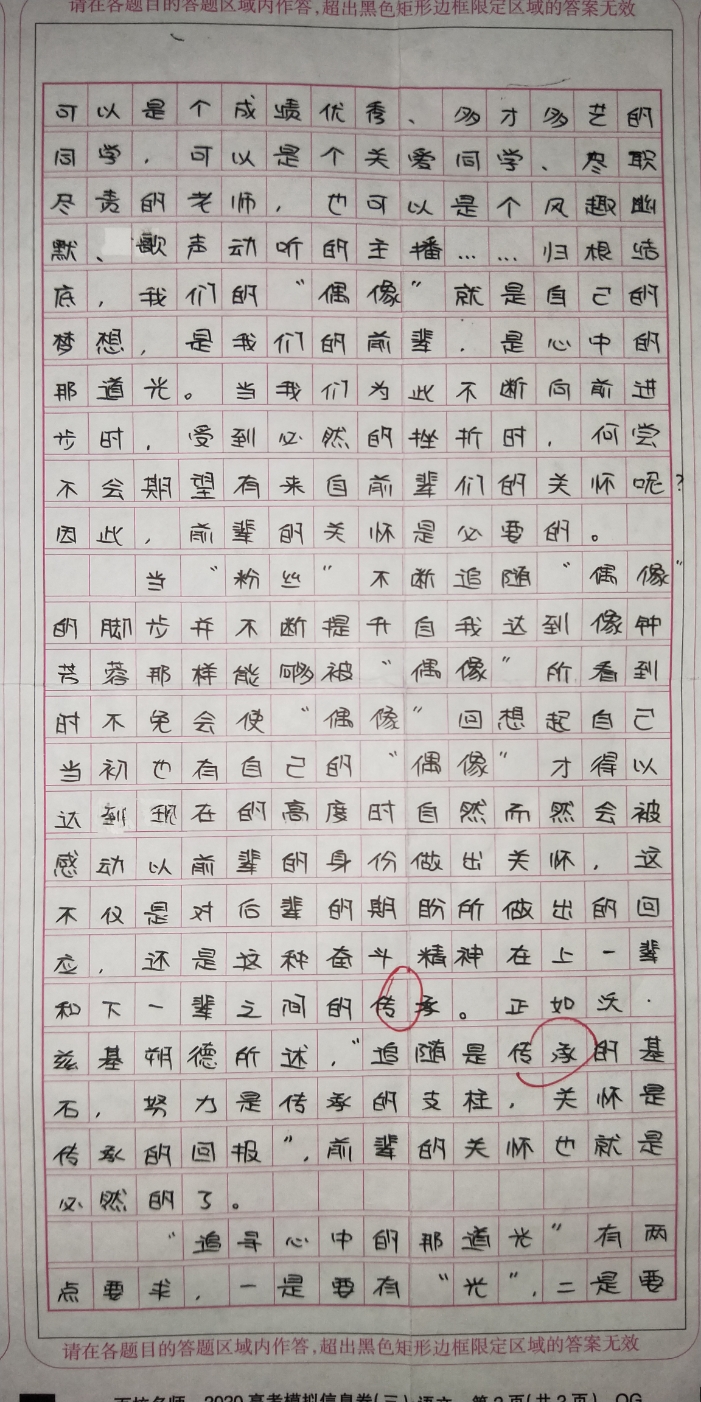 请在各题目的答题区域内作答,超出黑色矩形边框限定区域的答案无效
可以是个成绩优秀、多才多艺的
同学，可以是个关爱同学、尽职
尽责的老师，也可以是个风趣幽
默、歌声动听的主播……归根结
底，我们的“偶像”就是自己的
梦想，是我们的前辈，是心中的
那道光。当我们为此不断向前进
步时，受到必然的挫折时，何尝
不会期望有来自前辈们的关怀呢?
因此，前辈的关怀是必要的。
当“粉丝”不断追随“偶像”
的脚步并不断提升自我达到像钟
芳蓉那样能够被“偶像”所看到
时不免会使“偶像”回想起自己
当初也有自己的“偶像”才得以
达到现在的高度时自然而然会被
感动以前辈的身份做出关怀，这
不仅是对后辈的期盼所做出的回
应，还是这种奋斗精神在上一辈
和下一辈之间的传承。正如沃·
兹基朔德所述，“追随是传承的基
石，努力是传承的支柱，关怀是
传承的回报”，前辈的关怀也就是
必然的了。
“追寻心中的那道光”有两
点要求，一是要有“光”，二是要
请在各题目的答题区域内作答,超出黑色矩形边框限定区域的答案无效
2020高考模拟信息卷(三)语文 第2页(共2页) QG